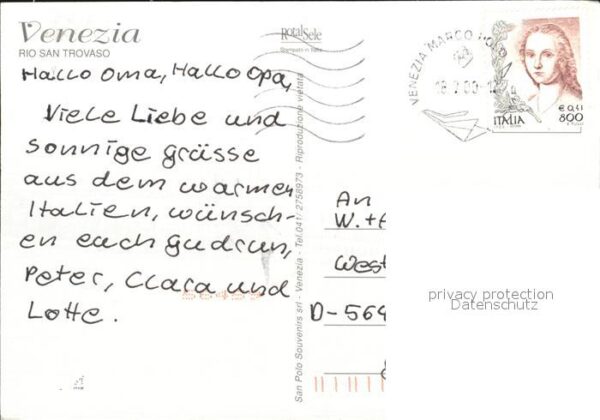 Venezia
RIO SAN TROVASO
Hallo Oma, Hallo Opa,
Viele Liebe und
sonnige grüsse
aus dem warmen
Italien, wünsch-
en euch gudrun,
Peter, Clara und
Lotte.
RotalSele
Stampato in Italia
San Polo Souvenirs srl - Venezia - Tel.041/ 2758973 - Riproduzione vietata
VENEZIA MARCO POLO
ITALIA
€ 0,41
800
An
W.+
West
D-564
privacy protection
Datenschutz